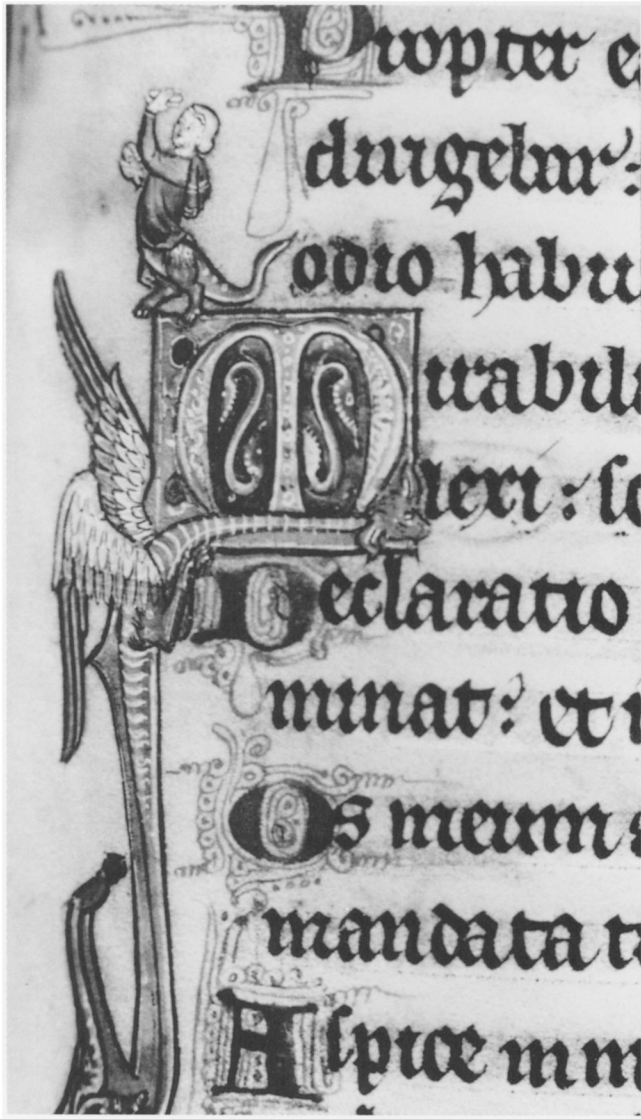 Propter e
dirigebar:
odio habu
Mirabili
Declaratio
minat: et i
Os meum a
mandata t
Aspice in m